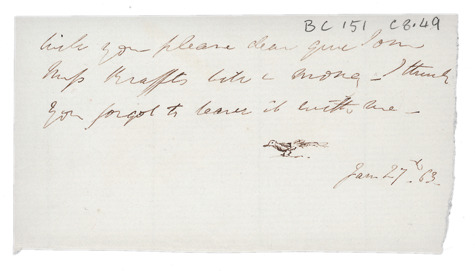 BC 151 CB.49
will you please dear give Tom
Miss Krafft's bill & money – I think
you forgot to leave it with me –
Jan 27th 63.